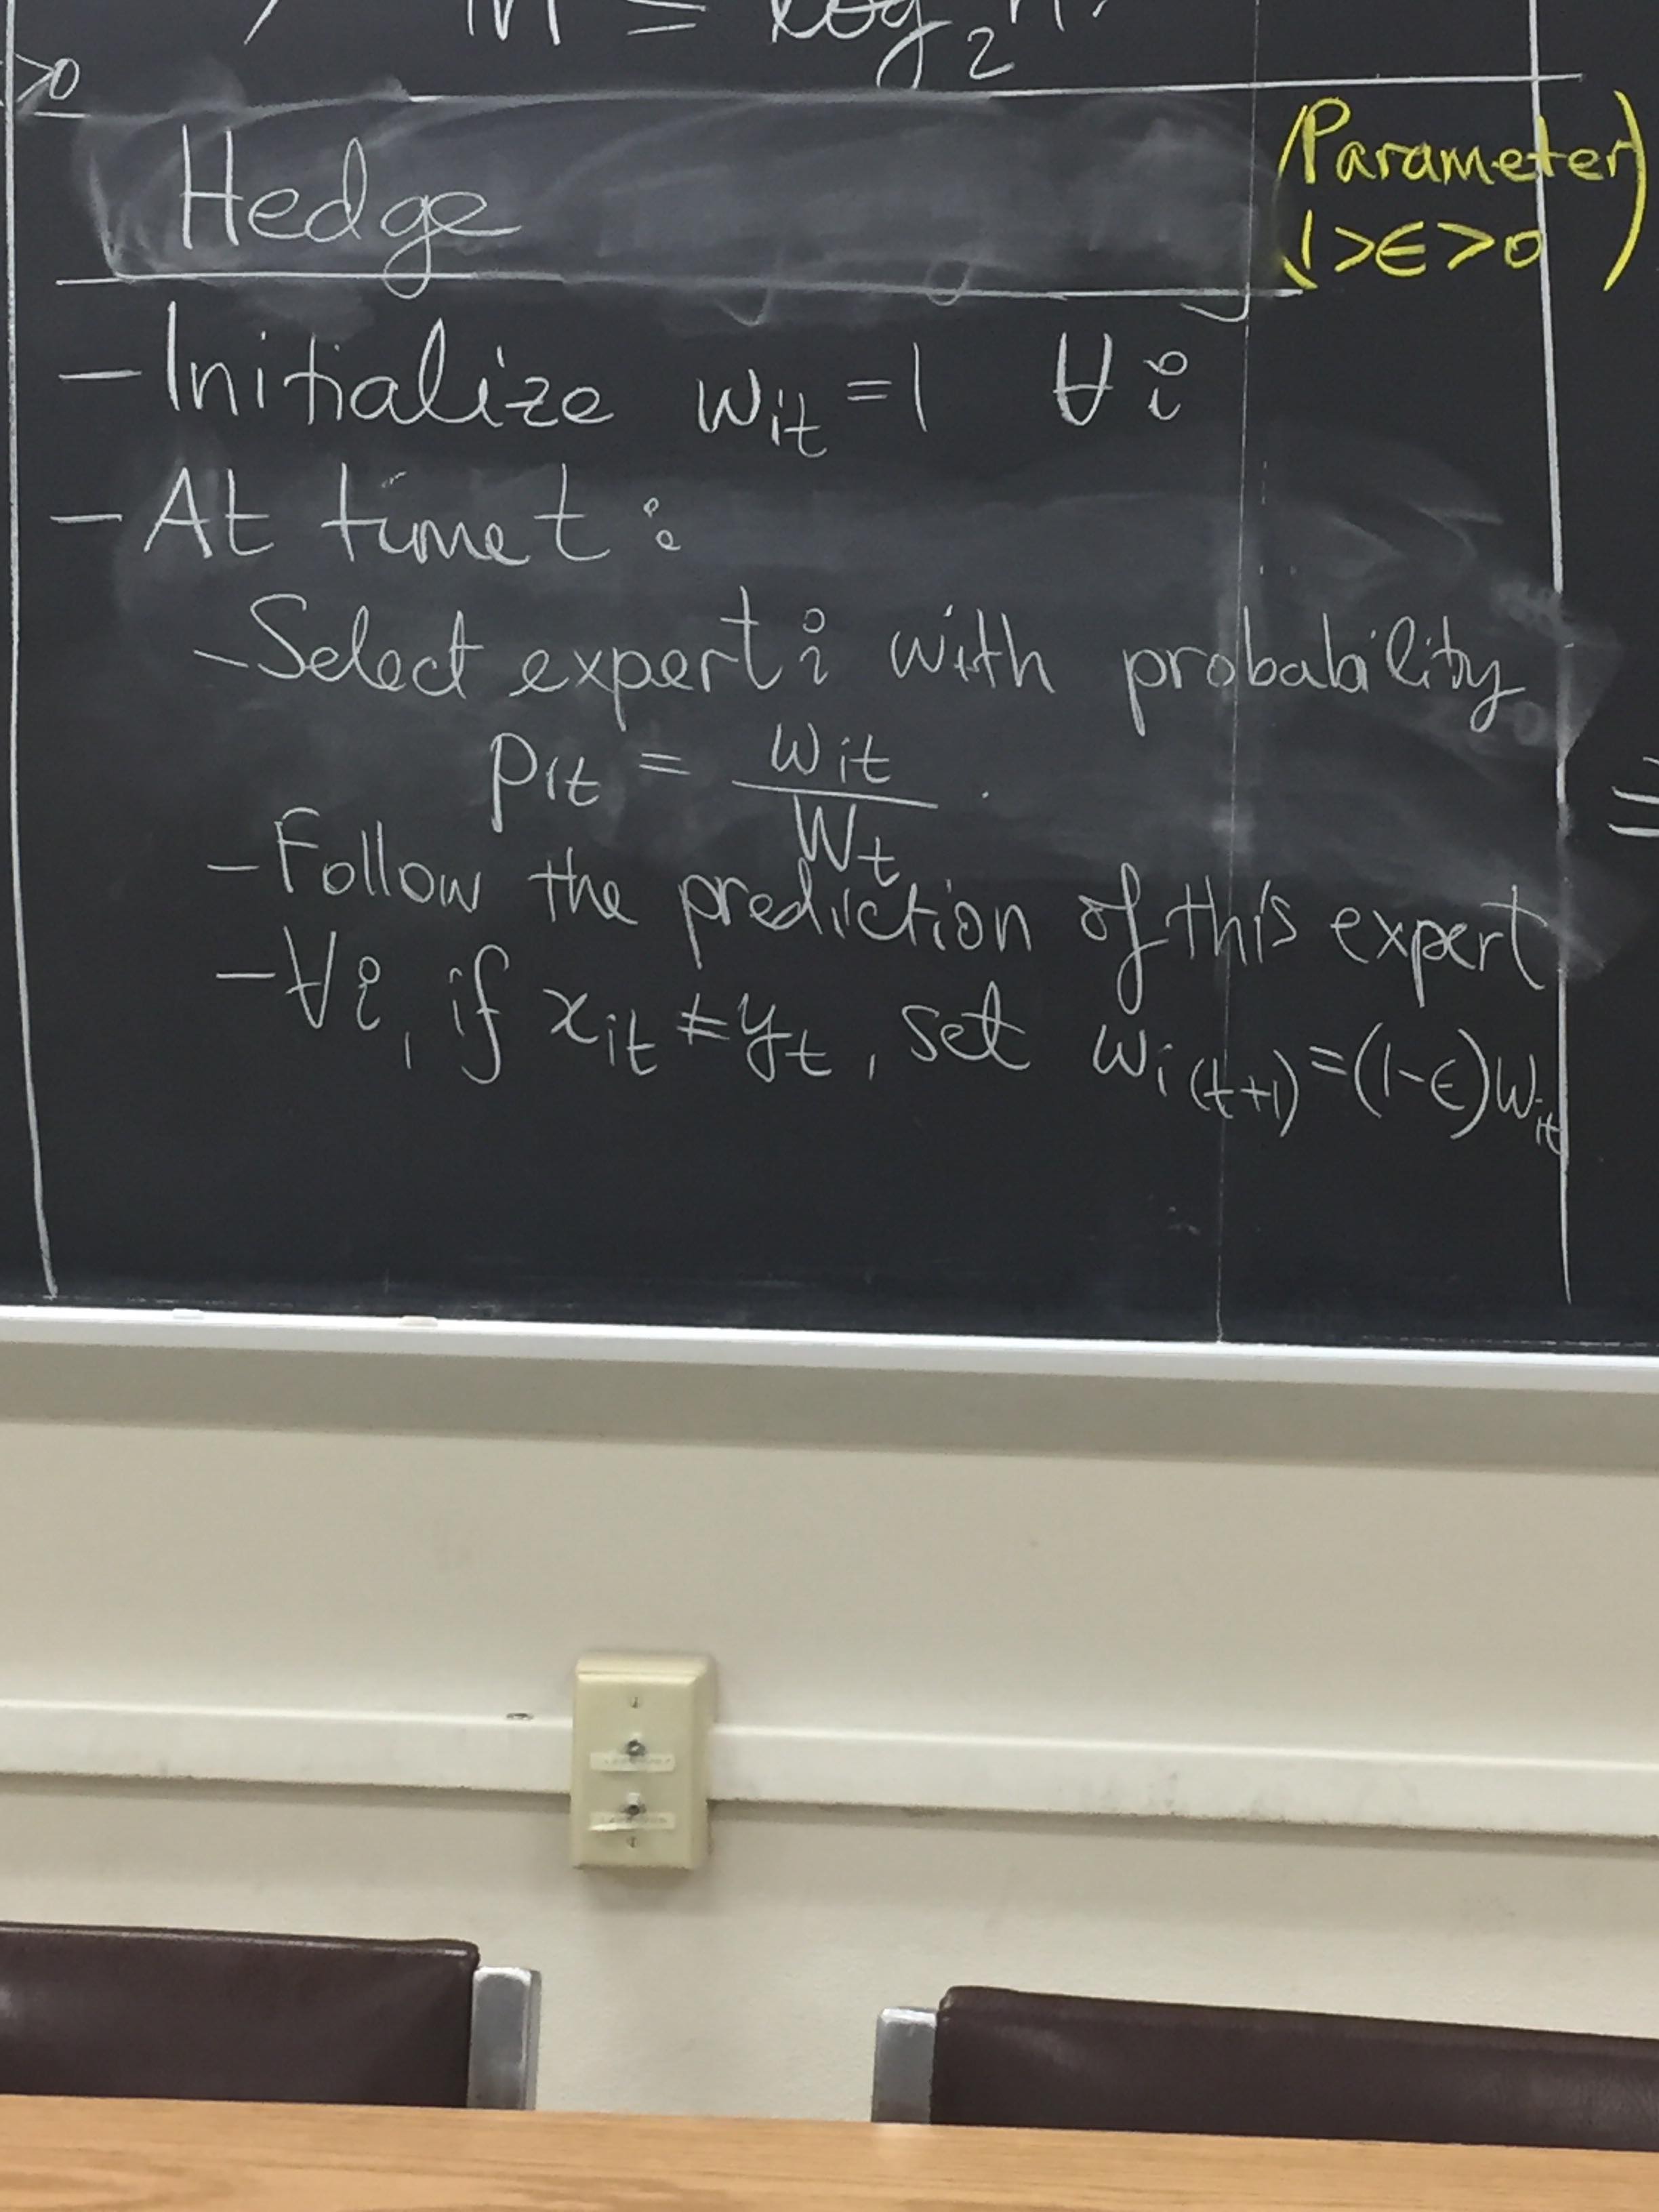 >0
m ≤ log₂ n
Hedge
(Parameter
1>ϵ>0)
– Initialize w_it = 1 ∀i
– At time t :
– Select expert i with probability
p_it = w_it / W_t .
– Follow the prediction of this expert
– ∀i, if x_it ≠ y_t, set w_i(t+1) = (1-ϵ)w_it
=